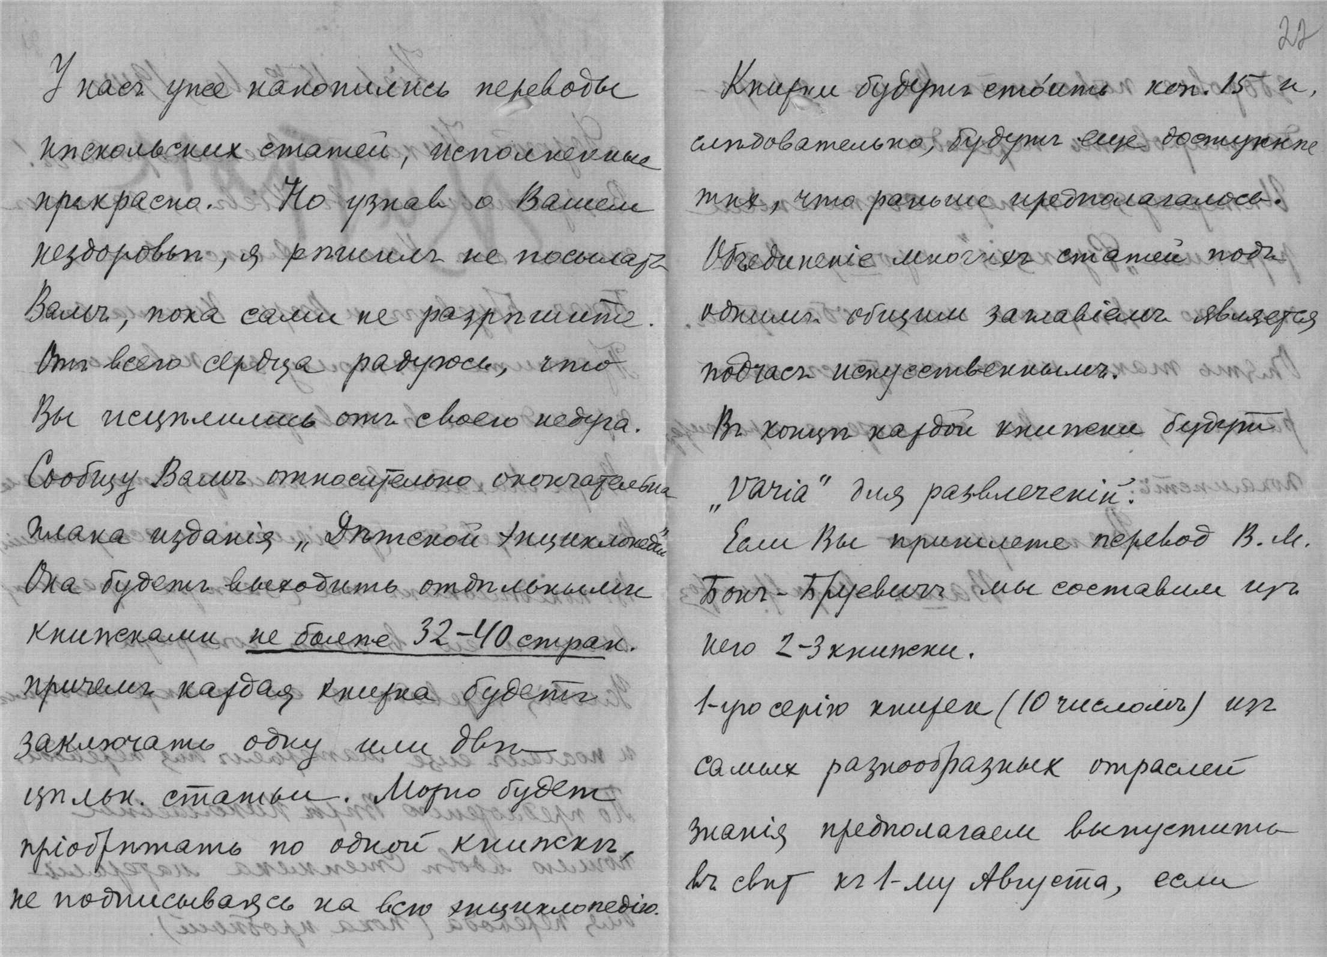 У насъ уже накопились переводы
нѣскольких статей, исполненные
прекрасно. Но узнав о Вашем
нездоровьи, я рѣшилъ не посылать
Вамъ, пока сами не разрѣшите.
Отъ всего сердца радуюсь, что
Вы исцѣлились отъ своего недуга.
Сообщу Вамъ относительно окончательна
плана изданія „Дѣтской энциклопедiи"
Она будетъ выходить отдѣльными
книжками не болѣе 32-40 стран.
причемъ каждая книжка будетъ
заключать одну или двѣ
цѣльн. статьи. Можно будет
пріобрѣтать по одной книжкѣ,
не подписываясь на всю энциклопедію.
22
Книжки будутъ стоить коп. 15 и,
слѣдовательно, будутъ еще доступнѣе
тѣх, что раньше предполагалось.
Объединеніе многихъ статей подъ
однимъ общим заглавіемъ является
подчасъ искусственнымъ.
Въ концѣ каждой книжки будут
„Varia" для развлеченій.
Если Вы пришлете перевод В. М.
Бонч-Бруевичъ мы составим изъ
него 2-3 книжки.
1-ую серію книжек (10 числомъ) изъ
самых разнообразных отраслей
знанія предполагаем выпустить
въ свѣт къ 1-му Августа, если